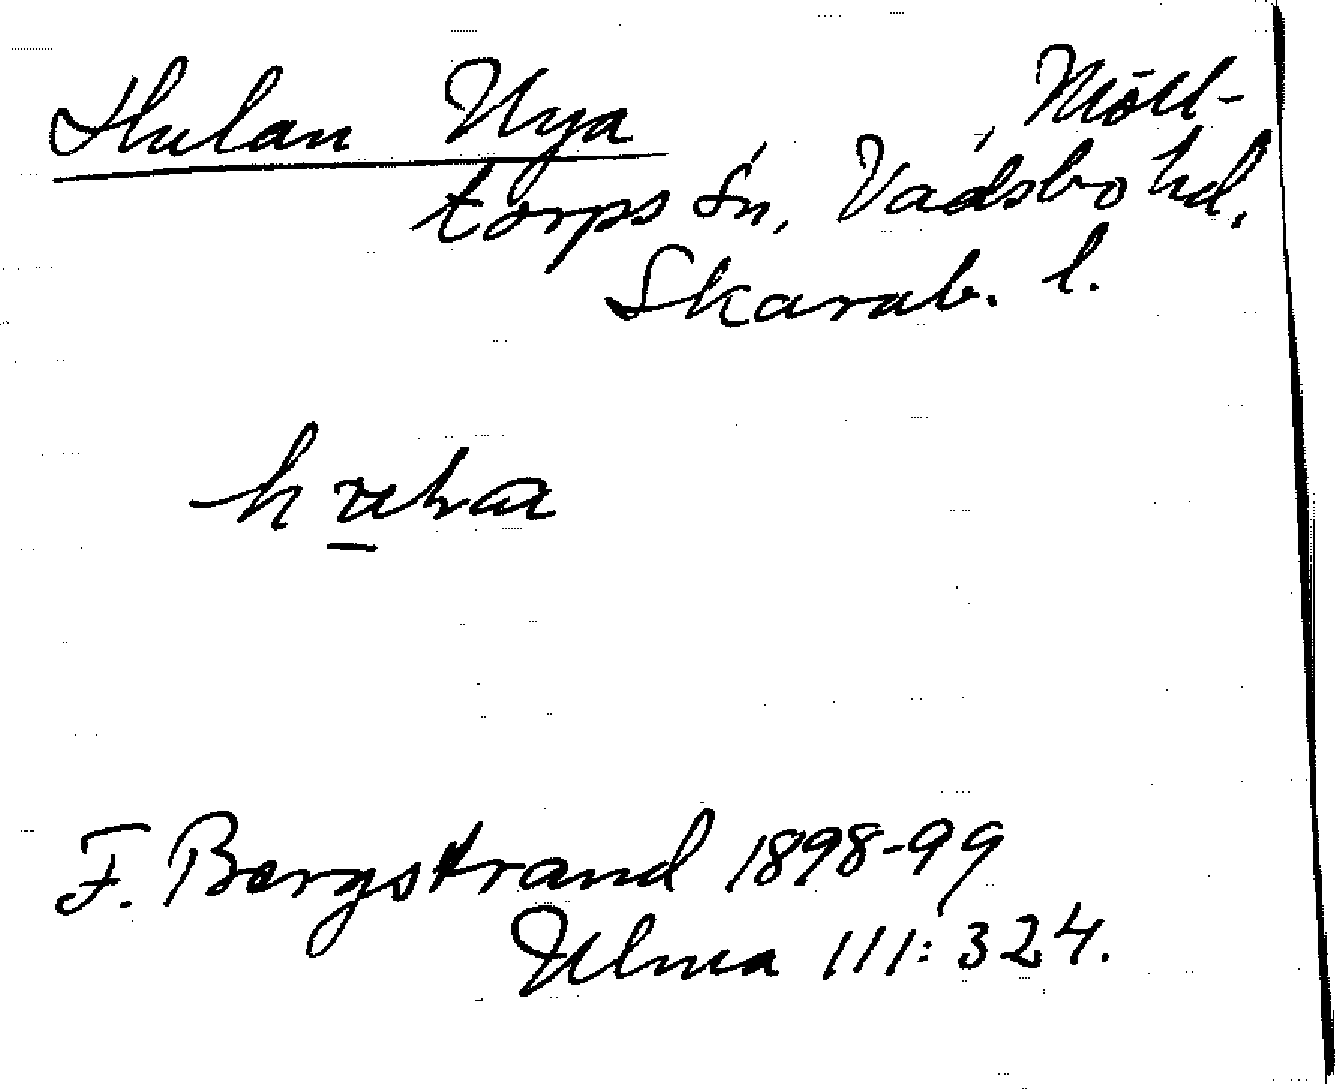 Hulan Nya, Möll-
torps sn, Vadsbo hd,
Skarab. l.
F. Bergstrand 1898-99
Ulma 111:324.